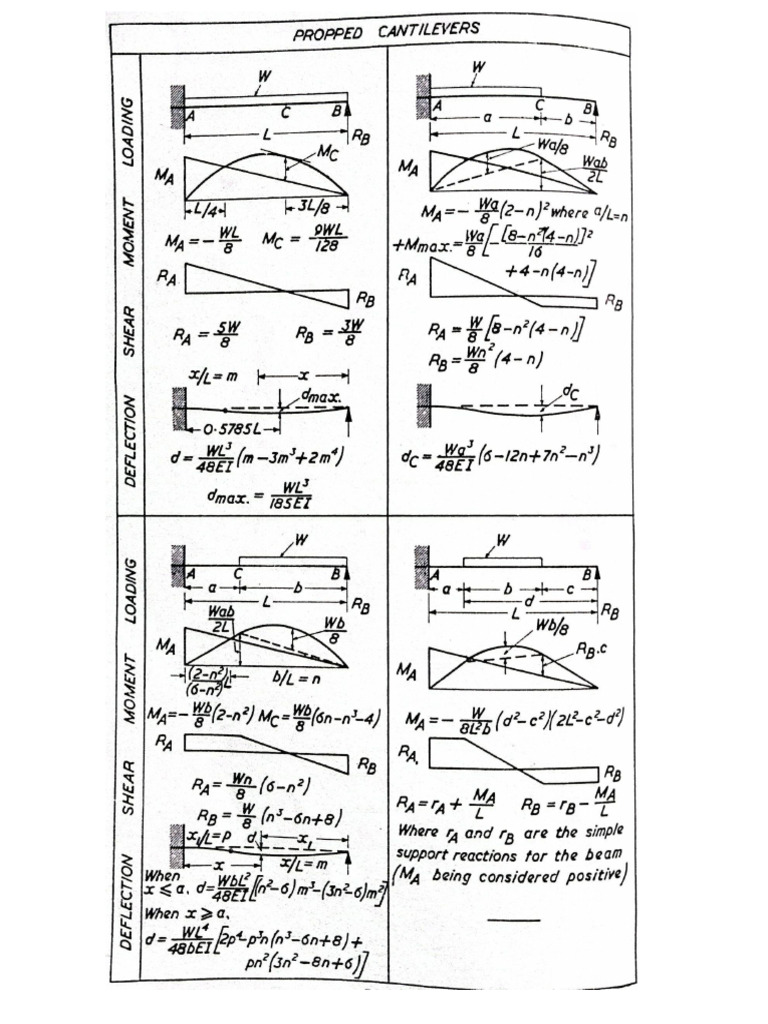 PROPPED CANTILEVERS
LOADING
MOMENT
SHEAR
DEFLECTION
W
A C B
L
R_B
M_A
M_C
L/4
3L/8
M_A = -WL/8 M_C = 9WL/128
R_A
R_B
R_A = 5W/8 R_B = 3W/8
x/L = m
x
d max.
0.5785L
d = WL³/48EI (m-3m³+2m⁴)
d max. = WL³/185EI
W
A C B
a b
L
R_B
Wa/8
M_A
Wab/2L
M_A = -Wa/8 (2-n)² where a/L=n
+Mmax. = Wa/8 [-[8-n²(4-n)]²/16
+4-n(4-n)]
R_A
R_B
R_A = W/8 [8-n²(4-n)]
R_B = Wn²/8 (4-n)
d_C
d_C = Wa³/48EI (6-12n+7n²-n³)
LOADING
MOMENT
SHEAR
DEFLECTION
W
A C B
a b
L
R_B
Wab/2L
Wb/8
M_A
(2-n²)/(6-n²) L
b/L = n
M_A = -Wb/8 (2-n²) M_C = Wb/8 (6n-n³-4)
R_A
R_B
R_A = Wn/8 (6-n²)
R_B = W/8 (n³-6n+8)
x₁/L = p d x₁
x x/L = m
When
x ≤ a, d = WbL²/48EI [(n²-6)m³-(3n²-6)m²]
When x ≥ a,
d = WL⁴/48bEI [2p⁴-p³n(n³-6n+8)+
pn²(3n²-8n+6)]
W
A B
a b c
d
L
R_B
Wb/8
R_B.c
M_A
M_A = -W/8L²b (d²-c²)(2L²-c²-d²)
R_A.
R_B
R_A = r_A + M_A/L R_B = r_B - M_A/L
Where r_A and r_B are the simple
support reactions for the beam
(M_A being considered positive)